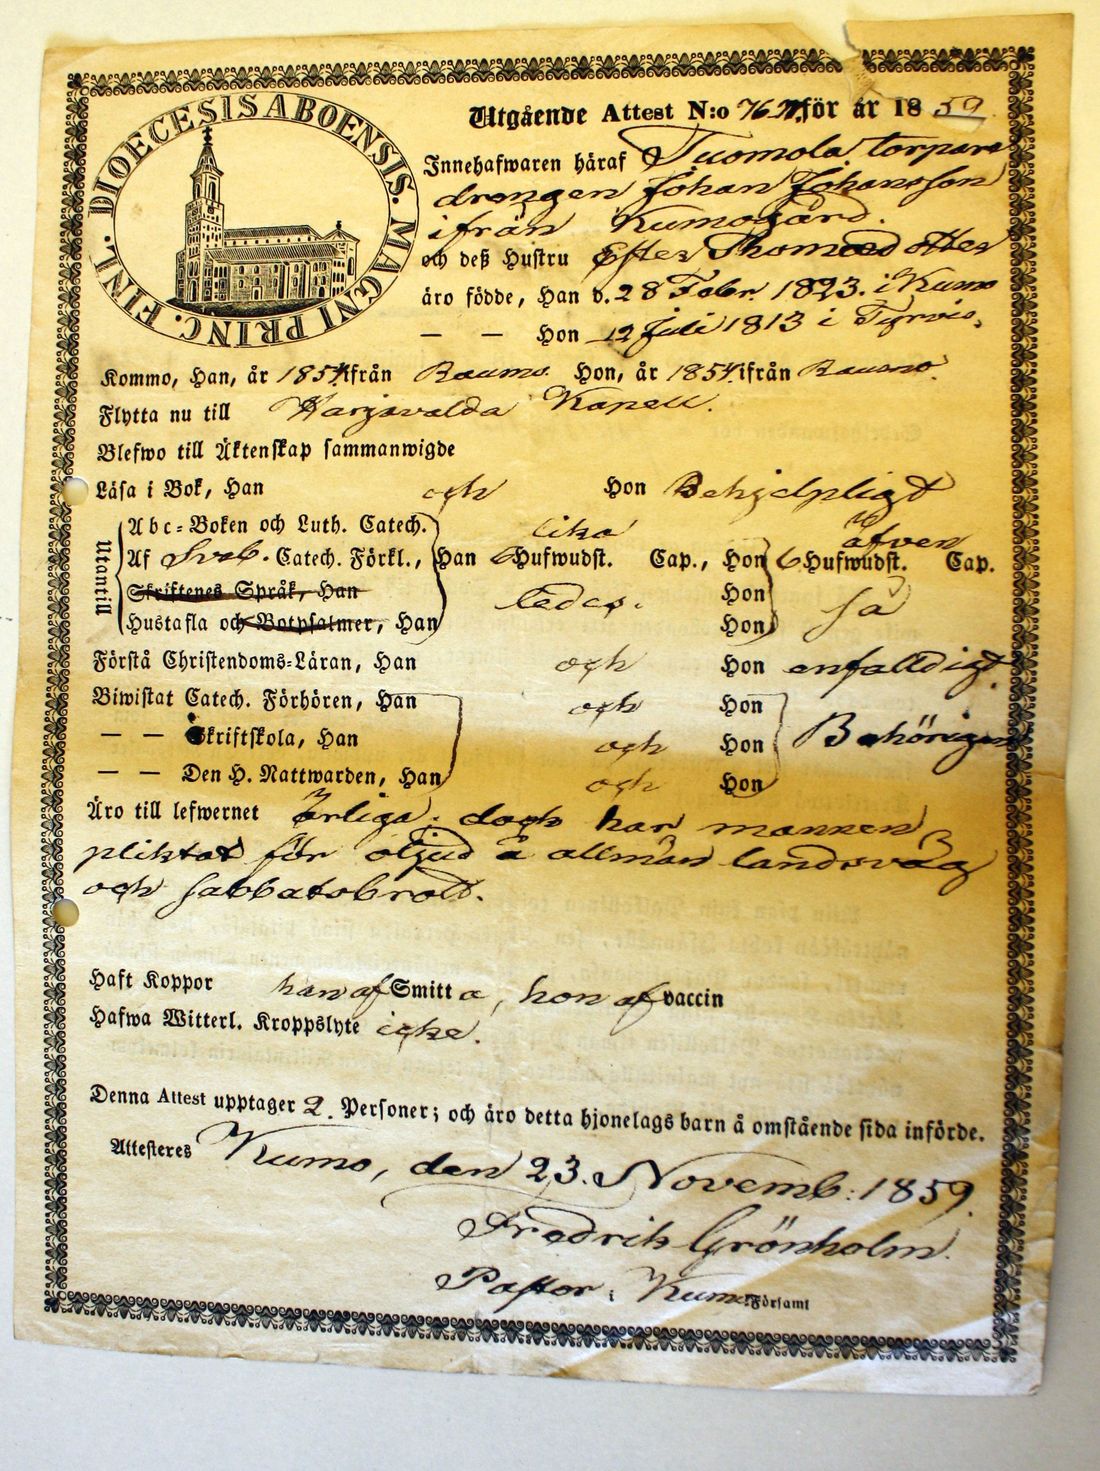 DIOECESIS ABOENSIS. MAGNI PRINC. FINL.
Utgående Attest N:o 76 för år 1859
Innehafwaren häraf Tuomola torpare
drengen Johan Johansson
ifrån Kumogård.
och deß Hustru Ester Thomasdotter
äro födde, Han d. 28 Febr. 1823. i Kumo
— — Hon 12 Juli 1813 i Tyrvis.
Kommo, Han, år 1854 ifrån Raumo. Hon, år 1854 ifrån Raumo.
Flytta nu till Harjavalda Kapell.
Blefwo till Äktenskap sammanwigde
Läsa i Bok, Han och Hon Behjelpligt
Utantill
Abc-Boken och Luth. Catech. lika även
Af Sveb. Catech. Förkl., Han 6 Hufwudst. Cap., Hon 6 Hufwudst. Cap.
Skriftenes Språk, Han ledes. Hon så
Hustafla och Botpsalmer, Han Hon
Förstå Christendoms-Läran, Han och Hon enfalldigt.
Biwistat Catech. Förhören, Han och Hon
— — Skriftskola, Han och Hon Behörigen
— — Den H. Nattwarden, Han och Hon
Äro till lefwernet ärliga; doch har mannen
pliktat för oljud å allmän landsväg
och sabbatsbrott.
Haft Koppor han af Smitta, hon af vaccin
Hafwa Witterl. Kroppslyte icke.
Denna Attest upptager 2. Personer; och äro detta hjonelags barn å omstående sida införde.
Attesteres Kumo, den 23. Novemb: 1859.
Fredrik Grönholm.
Pastor i Kumo Församl